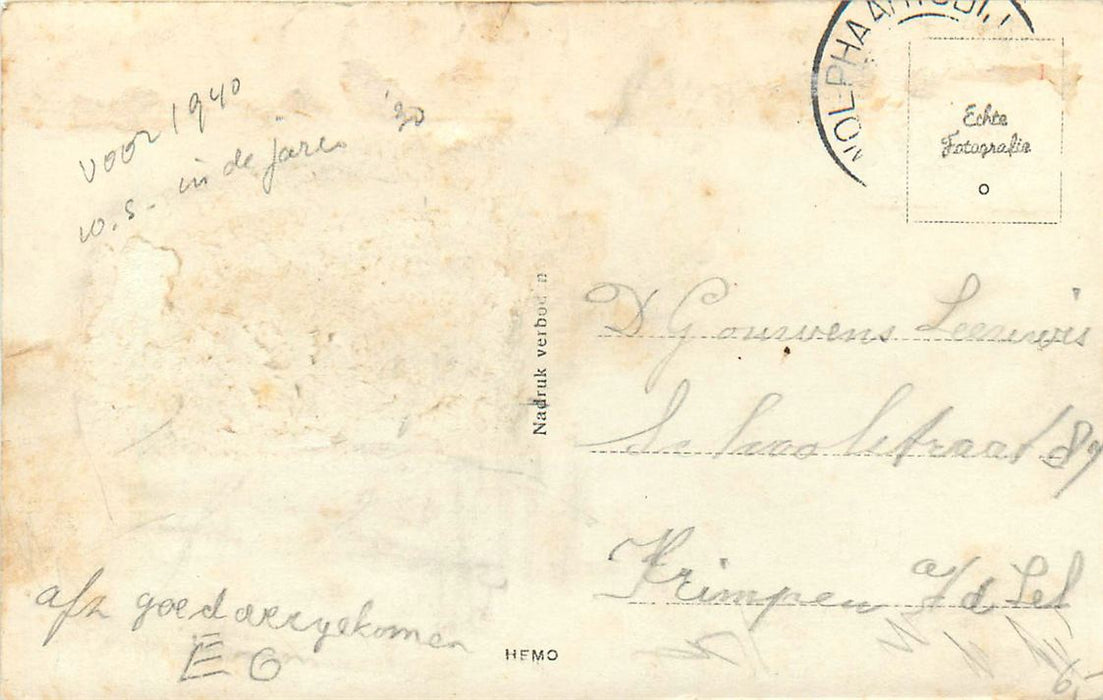 voor 1940
w.s. in de jaren '30
Echte
Fotografie
Nadruk verboden
D Gouwens Leeuwis
Schoolstraat 87
Krimpen a/d Lek
afz goed overgekomen
E G
HEMO
6-